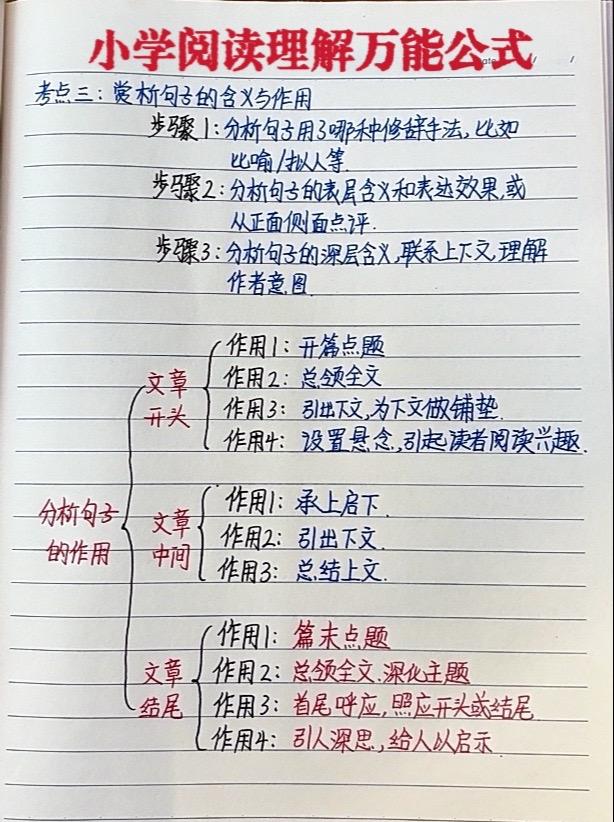 小学阅读理解万能公式
考点三：赏析句子的含义与作用
步骤1：分析句子用了哪种修辞手法，比如
比喻/拟人等.
步骤2：分析句子的表层含义和表达效果,或
从正面侧面点评.
步骤3：分析句子的深层含义,联系上下文,理解
作者意图
分析句子的作用
文章开头
作用1：开篇点题
作用2：总领全文
作用3：引出下文,为下文做铺垫.
作用4：设置悬念,引起读者阅读兴趣.
文章中间
作用1：承上启下.
作用2：引出下文.
作用3：总结上文.
文章结尾
作用1：篇末点题
作用2：总领全文.深化主题
作用3：首尾呼应,照应开头或结尾
作用4：引人深思,给人以启示.